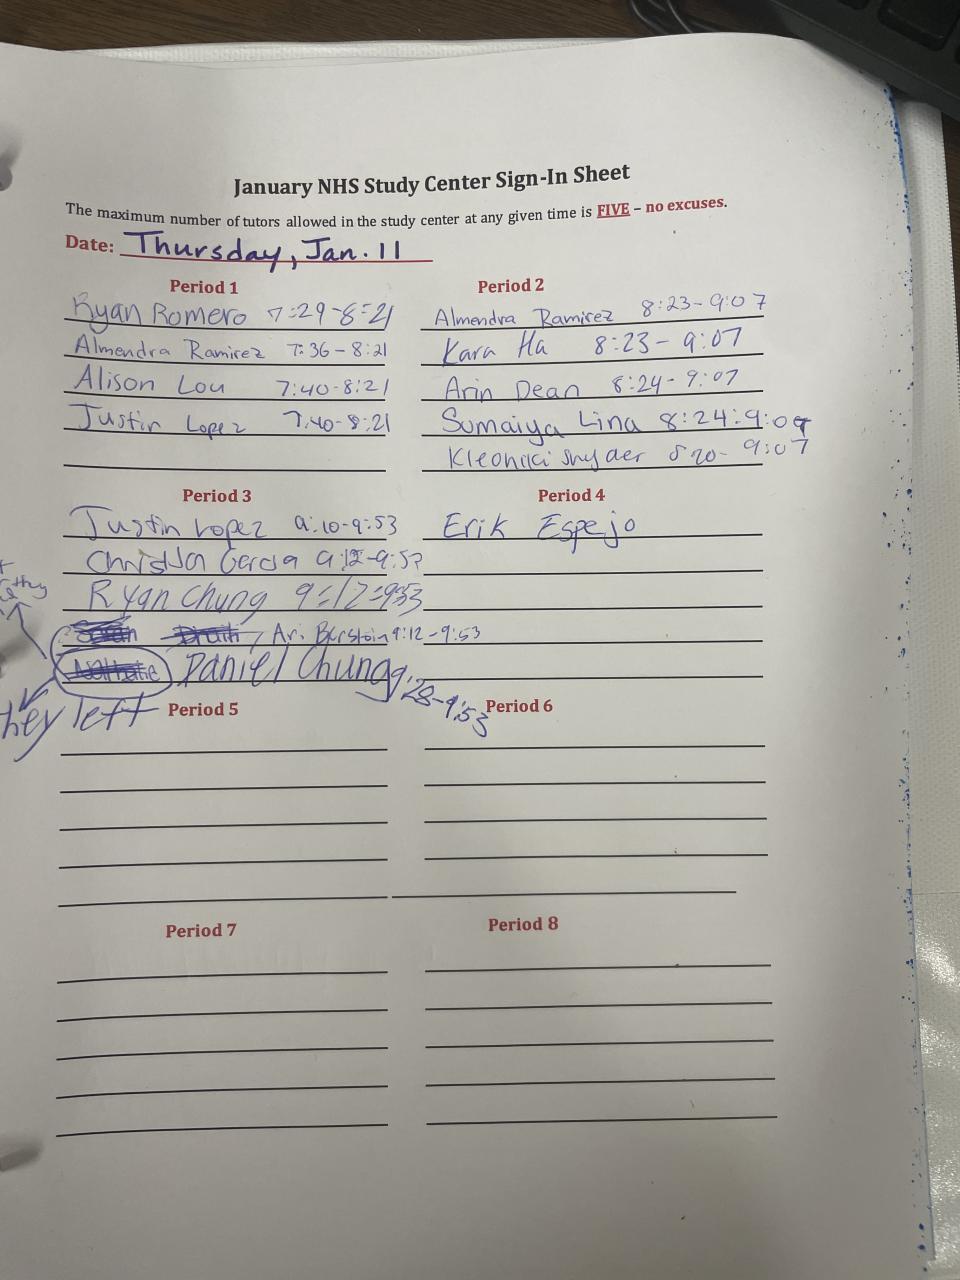 January NHS Study Center Sign-In Sheet
The maximum number of tutors allowed in the study center at any given time is FIVE – no excuses.
Date: Thursday, Jan. 11
Period 1
Ryan Romero 7:29-8:21
Almendra Ramirez 7:36-8:21
Alison Lou 7:40-8:21
Justin Lopez 7:40-8:21
Period 2
Almendra Ramirez 8:23-9:07
Kara Ha 8:23-9:07
Arin Dean 8:24-9:07
Sumaiya Lina 8:24-9:07
Snyder 8:20-9:07
Period 3
Justin Lopez 9:10-9:53
Garcia 9:12-9:53
Ryan Chung 9:12-9:53
Ari 9:12-9:53
Daniel Chung 9:28-9:53
they left
Period 4
Erik Espejo
Period 5
Period 6
Period 7
Period 8